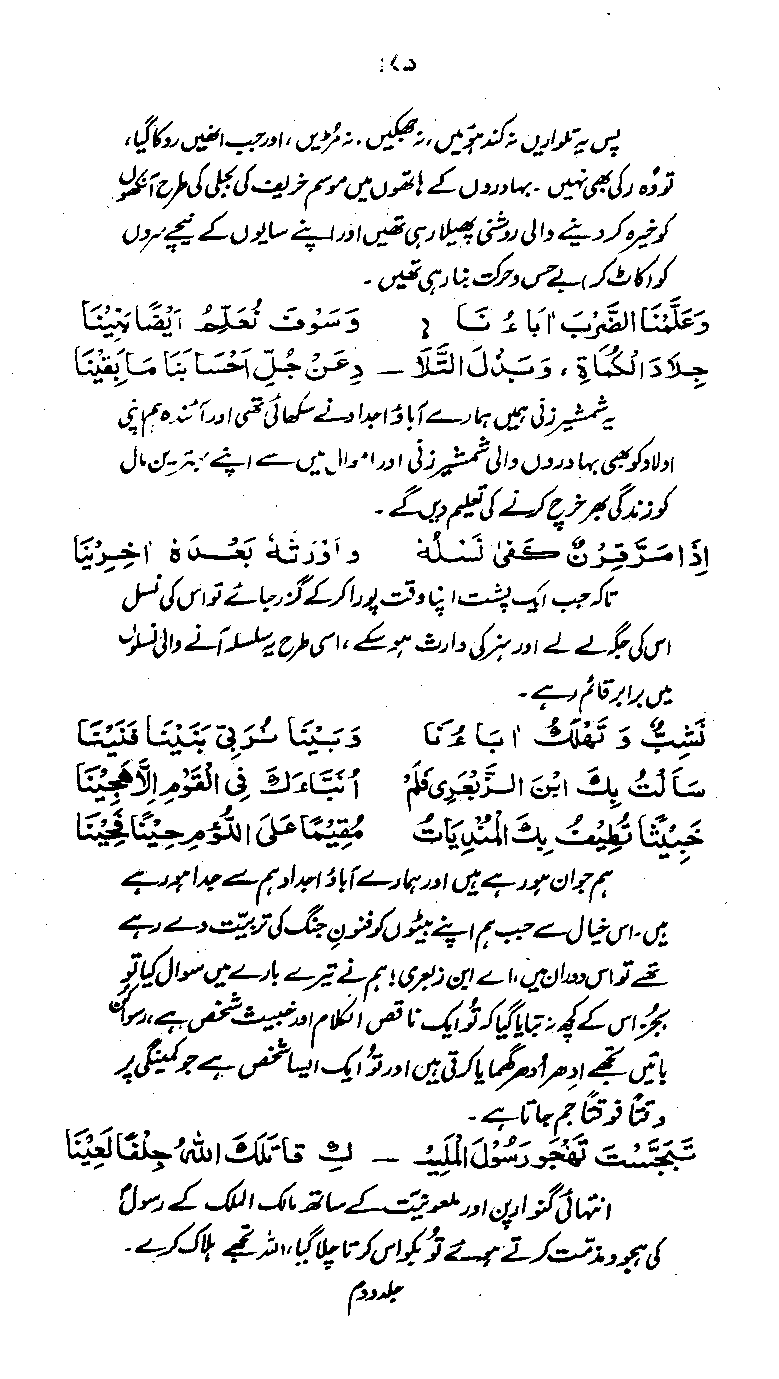 ۱۷۵
پس یہ تلواریں نہ کند ہوئیں، نہ جھکیں، نہ مڑیں، اور جب انھیں روکا گیا،
تو وُہ رکی بھی نہیں۔ بہادروں کے ہاتھوں میں موسم خریف کی بجلی کی طرح آنکھوں
کو خیرہ کر دینے والی روشنی پھیلا رہی تھیں اور اپنے سایوں کے نیچے سروں
کو کاٹ کر بے حس و حرکت بنا رہی تھیں۔
وَعَلَّمْنَا الضَّرْبَ اٰبَاءُ نَا وَسَوْفَ نُعَلِّمُ اَیْضًا بَنِیْنَا
جِلَادَ الْکُمَاةِ، وَبَذْلَ التِّلَا — دِعَنْ جُلِّ اَحْسَابِنَا مَا بَقِیْنَا
یہ شمشیر زنی ہمیں ہمارے آباؤ اجداد نے سکھائی تھی اور آئندہ ہم اپنی
اولاد کو بھی بہادروں والی شمشیر زنی اور اموال میں سے اپنے بہترین مال
کو زندگی بھر خرچ کرنے کی تعلیم دیں گے۔
اِذَا مَرَّ قِرْنٌ کَفٰی نَسْلُهٗ وَ اَوْرَثَهٗ بَعْدَهٗ اٰخِرِیْنَا
تاکہ جب ایک پشت اپنا وقت پورا کر کے گزر جائے تو اس کی نسل
اس کی جگہ لے لے اور ہنر کی وارث ہو سکے، اسی طرح یہ سلسلہ آنے والی نسلوں
میں برابر قائم رہے۔
نَشِبُّ وَ تَهْلِكُ اٰبَاءُنَا وَبَیْنَا نُرَبِّیْ بَنِیْنَا فَنِیْنَا
سَأَلْتُ بِكَ ابْنَ الزِّبَعْرٰی فَلَمْ اُنَبَّاءَكَ فِی الْقَوْمِ اِلَّا هَجِیْنَا
خَبِیْثًا تُطِیْفُ بِكَ الْمُنْدِیَاتُ مُقِیْمًا عَلَی اللُّؤْمِ حِیْنًا فَحِیْنَا
ہم جوان ہو رہے ہیں اور ہمارے آباؤ اجداد ہم سے جدا ہو رہے
ہیں۔ اس خیال سے جب ہم اپنے بیٹوں کو فنونِ جنگ کی تربیّت دے رہے
تھے تو اس دوران میں، اے ابن زبعری! ہم نے تیرے بارے میں سوال کیا تو
بجز اس کے کچھ نہ بتایا گیا کہ تُو ایک ناقص الکلام اور خبیث شخص ہے، رسوا کن
باتیں تجھے اِدھر اُدھر گھمایا کرتی ہیں اور تُو ایک ایسا شخص ہے جو کمینگی پر
وقتًا فوقتًا جم جاتا ہے۔
تَبَجَّسْتَ تَهْجُو رَسُوْلَ الْمَلِیْـ — كِ قَاتَلَكَ اللّٰهُ جِلْفًا لَعِیْنَا
انتہائی گنوارپن اور ملعونیّت کے ساتھ مالک الملک کے رسولؐ
کی ہجو و مذمّت کرتے ہوئے تُو بکواس کرتا چلا گیا، اللہ تجھے ہلاک کرے۔
جلد دوم